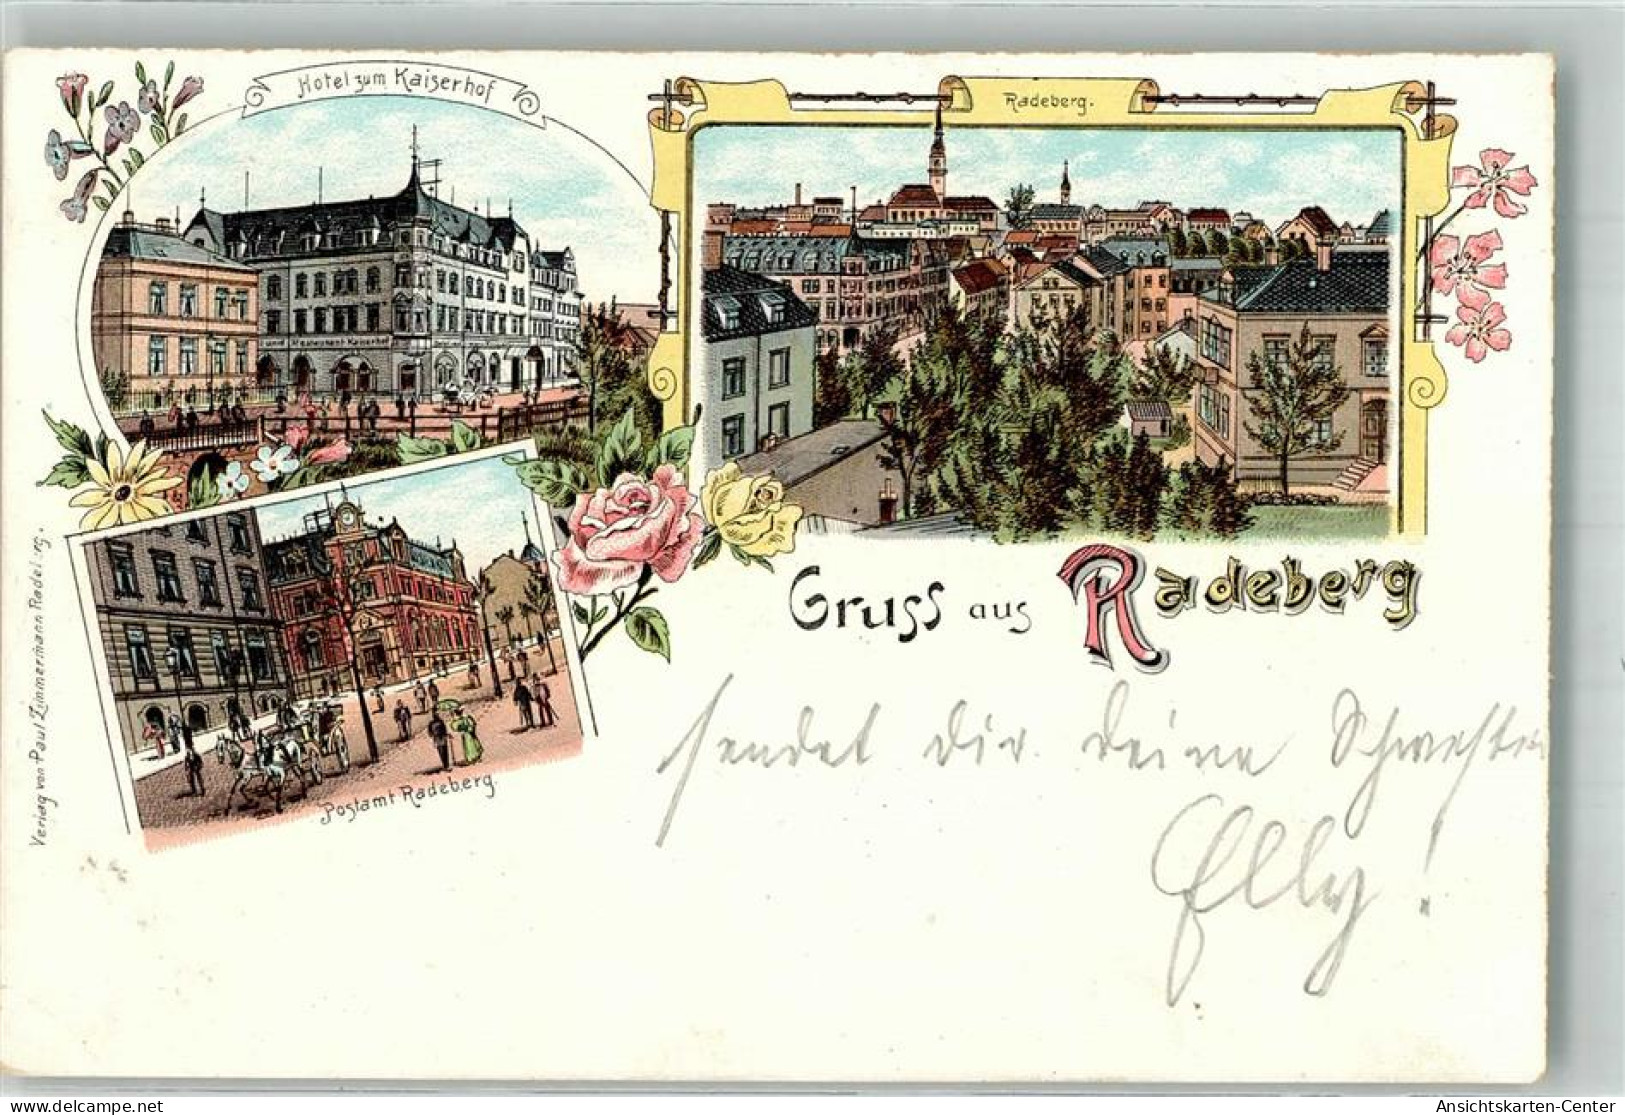 Hotel zum Kaiserhof
Radeberg.
Restaurant Kaiserhof
Postamt Radeberg.
Verlag von Paul Zimmermann Radeberg.
Gruss aus Radeberg
sendet dir deine Schwester
Elly!
delcampe.net
Ansichtskarten-Center